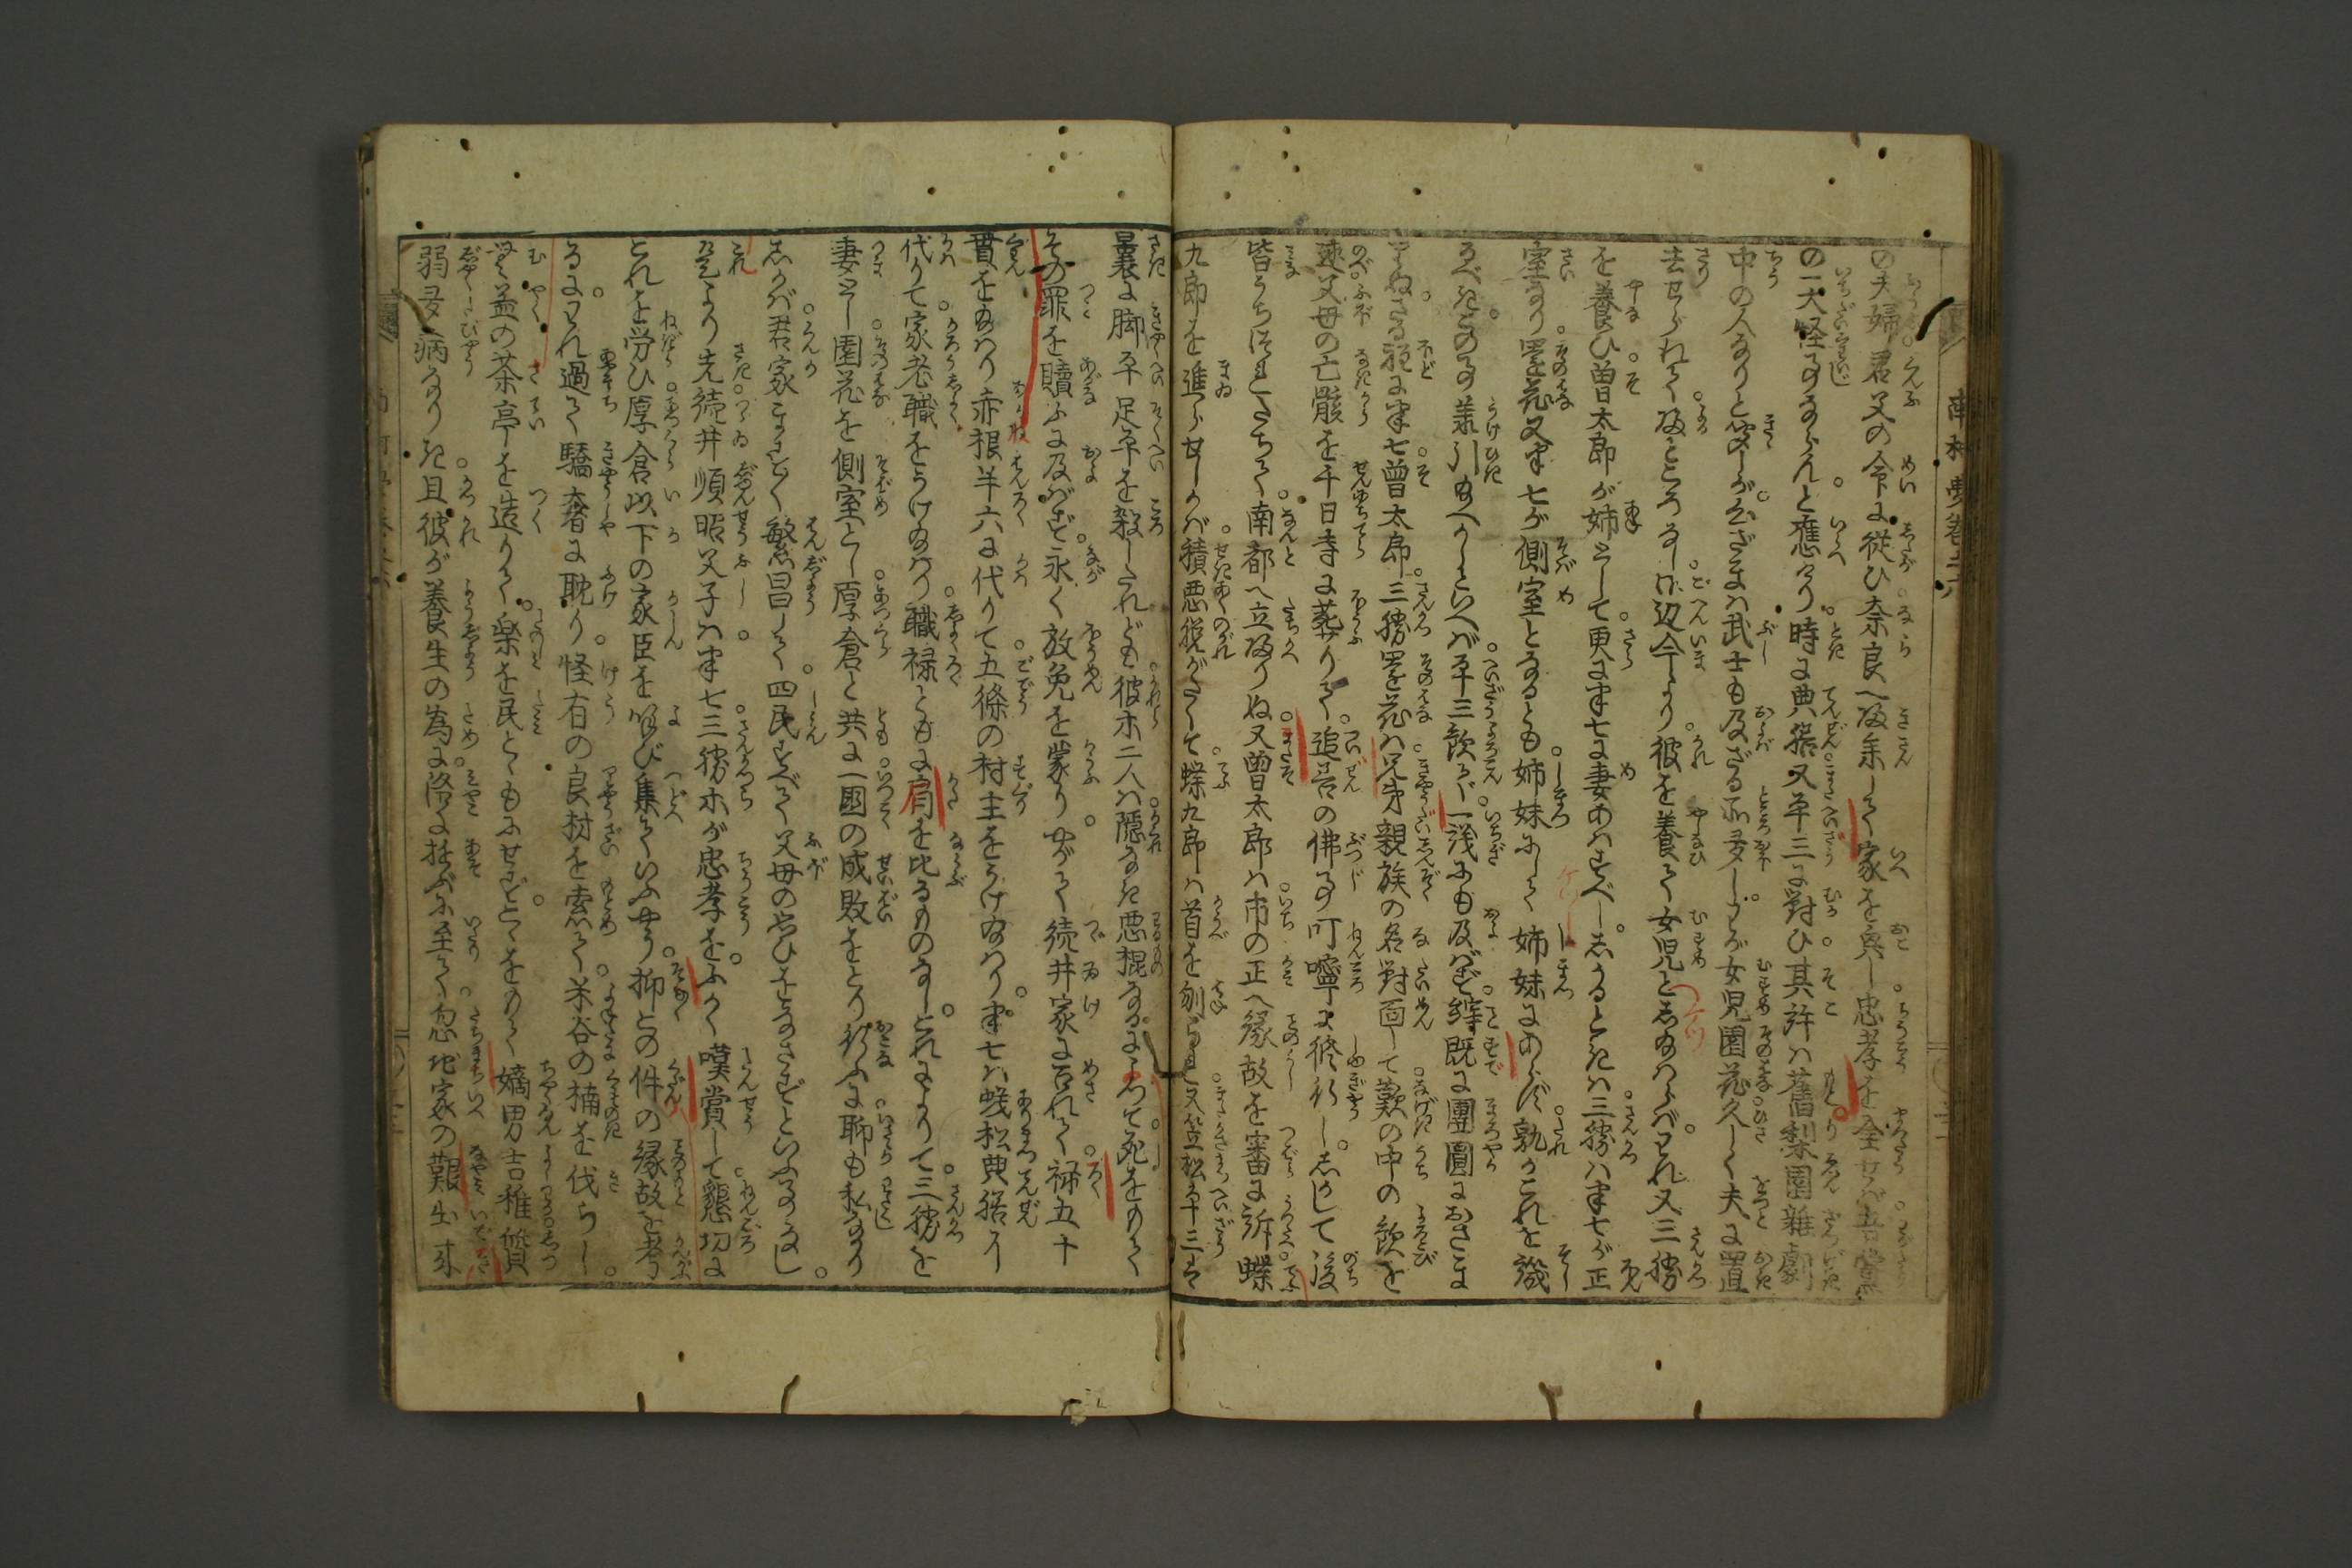 の夫婦君父の命に従ひ奈良へ帰参して家を興し忠孝を全せば吾黨
の一大怪事ならんと應けり時に典膳又平三に對ひ其許は舊梨園雜劇
中の人なりと聞しが云ざまは武士も及ざる所多しわが女児園花久しく夫に置
去せられて帰ところなし此辺今より彼を養ひて女児としたまはらばわれ又三勝
を養ひ曽太郎が姉として更に半七に妻あはすべししかるときは三勝は半七が正
室なり園花又半七が側室となるとも姉妹にして姉妹にあらず孰かこれを譏
るべきこの事承引たまへかしといへば平三歓び一議にも及ばず縡既に團圓におさま
りぬさる程に半七曽太郎三勝園花は兄弟親族の名對面して歎の中の歓を
速父母の亡骸を千日寺に葬りて追善の佛事叮嚀に修行ししかして後
皆うち連たちて南都へ立帰りぬ又曽太郎は市の正へ縁故を審に訴蝶
九郎を進らせしかば積悪脱がたくて蝶九郎は首を刎られ又笠松平三は
曩に脚平足平を殺したれども彼等二人は隠なき悪棍なるによつて死をのがれ
その罪を贖ふに及ばず永く放免を蒙りやがて続井家に召れて禄五十
貫をたまはり赤根半六に代りて五條の村主をうけたまはり半七は蟻松典膳に
代りて家老職をうけたまはり職禄ともに肩を比るものなしこれによりて三勝を
妻とし園花を側室とし厚倉と共に一國の成敗をとり行ふに聊も私なかり
しかば君家ますます繁昌して四民すべて父母の思ひをなさずといふ事なし
是より先続井順昭父子は半七三勝等が忠孝をふかく嘆賞して懇切に
これを労ひ厚倉以下の家臣を召び集ていふやう抑この件の縁故を考
るにわれ過て驕奢に耽り怪有の良材を索て米谷の楠を伐らし
無益の茶亭を造りて楽を民とともにせずこゝをもて嫡男吉稚質
弱多病なりき且彼が養生の為に洛に遊ぶに至て忽地家の艱出来
南柯夢巻之六